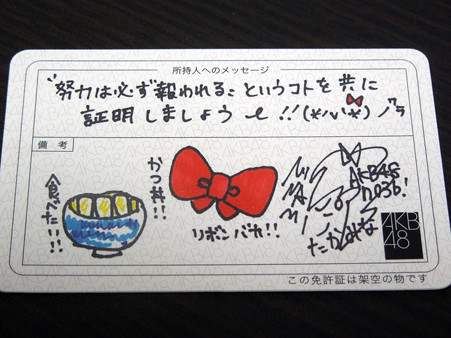 所持人へのメッセージ
"努力は必ず報われる"というコトを共に
証明しましょう〜!!(*^^*)
備考
かつ丼!!
食べたい!!
リボンバカ!!
たかみな
AKB48
AKB
48
この免許証は架空の物です